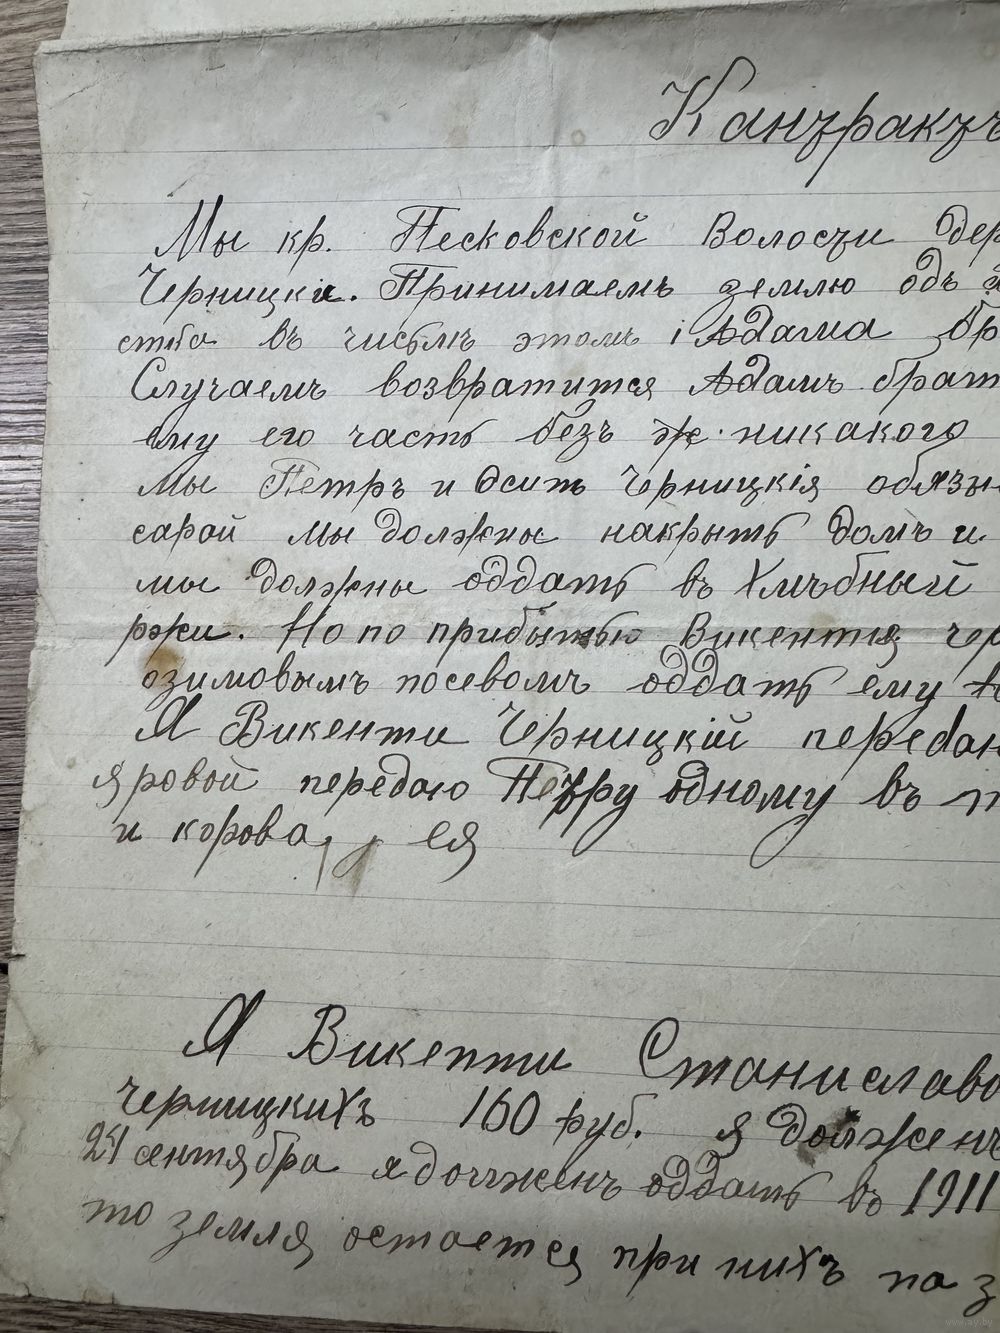 Кантрактъ
Мы кр. Песковской Волости дер
Черницки. Принимаемъ землю одъ
ства въ числѣ этомъ і Адама бр
Случаемъ возвратится Адамъ брат
ему его часть безъ никакого
мы Петръ и Осипъ Черницкія обязы
сарай мы должны накрыть домъ и
мы должны оддать въ Хлѣбный
ржи. Но по прибытью Викентія чер
озимовымъ посевомъ оддать ему
Я Викенти Черницкій передаю
яровой передаю Петру одному въ п
и корова, ея
Я Викенти Станиславо
черницкихъ 160 руб. я долженъ
24 сентября я долженъ оддать въ 1911
то земля остается при нихъ на з
www.ay.by